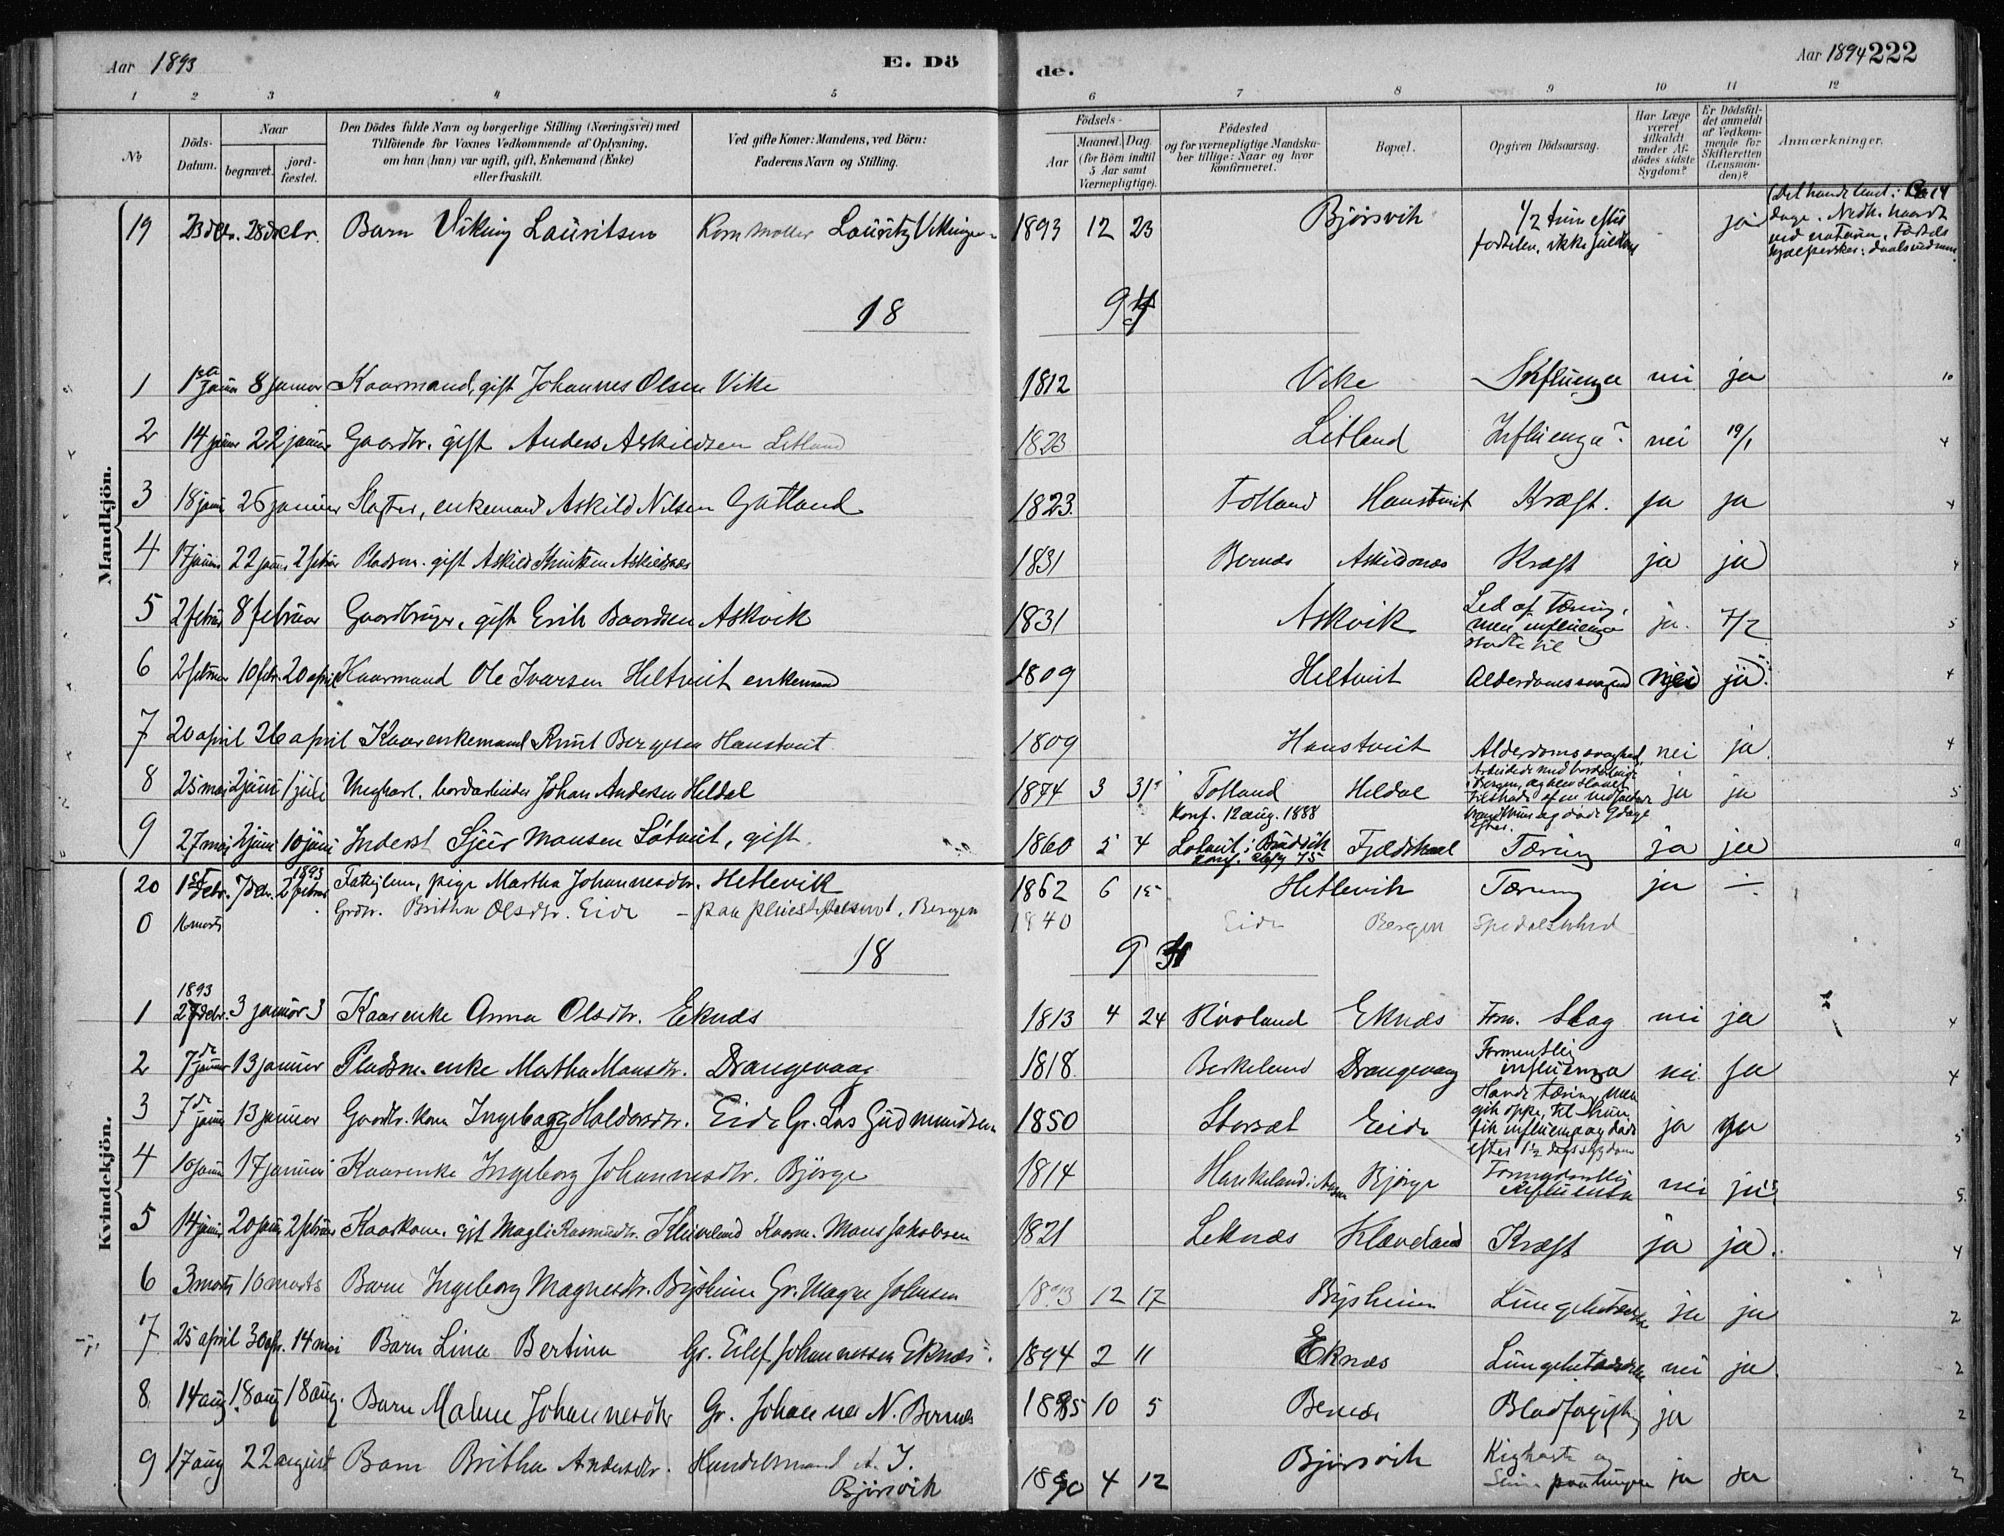 Aar 1893 E. Dö de. Aar 1894 222
1 2 3 4 5 6 7 8 9 10 11 12
№ Döds-Datum. Naar begravet. jordfæstet. Den Dödes fulde Navn og borgerlige Stilling (Næringsvei) med Tilföiende for Voxnes Vedkommende af Oplysning, om han (hun) var ugift, gift, Enkemand (Enke) eller fraskilt. Ved gifte Koner: Mandens, ved Börn: Faderens Navn og Stilling. Födsels- Aar Maaned. Dag. (for Börn indtil 5 Aar samt Værnepligtige). Födested og for værnepligtige Mandskaber tillige: Naar og hvor konfirmeret. Bopæl. Opgiven Dödsaarsag. Har Læge været tilkaldt under Afdödes sidste Sygdom? Er Dödsfaldet anmeldt af Vedkommende for Skifteretten (Lensmanden)? Anmærkninger.
Mandkjön.
19 23 dcbr. 28 dcbr. Barn Viking Lauritsen Lauritz Vikingsen 1893 12 23 Bjørsvik 1/2 time efter fødselen, ikke ja
18 9
1 1ste januar 8 januar Kaarmand, gift Johannes Olsen Vike 1812 Vike Influenza nei ja 10
2 14 januar 22 januar Gaardbr. gift Anders Askildsen Litland 1823 Litland Influenza nei 19/1 4
3 18 januar 26 januar enkemand Askild Nilsen Gatland 1823 Totland Haustveit Kræft. ja ja 4
4 17 januar 22 janr 2 februar Pladsm. gift Askild Knutsen Askildsnæs 1831 Bernæs Askildsnæs Kræft ja ja 4
5 2 februar 8 februar Gaardbruger, gift Erik Baardsen Askvik 1831 Askvik Led af Tæring, men influenza stødte til ja 7/2 5
6 2 februar 10 febr. 20 april Kaarmand Ole Ivarsen Heltveit enkemand 1809 Heltveit Alderdomssvaghed nei ja 4
7 20 april 26 april Kaarenkemand Knut Bergesen Haustveit 1809 Haustveit Alderdomssvaghed nei ja 4
8 25 mai 2 juni 1 juli Ungkarl. Johan Andersen Heldal 1874 3 31 Totland Konf. 12 aug. 1888 Heldal ja ja 5
9 27 mai 2 juni 10 juni Inderst Sjur Monsen Løtveit, gift. 1860 5 4 Løtveit i Tæring ja ja
Kvindekjön.
20 1ste Debr. 7 debr. 2 februar 1893 pige Martha Johannesdtr. Hetlevik 1862 6 15 Hetlevik Tæring ja
0 16 marts Grdbr. Britha Olsdtr. Eide paa pleiestiftelsen, Bergen 1840 Eide Bergen Spedalskhed
18 9
1 1893 27 debr. 3 januar Kaarenke Anna Olsdtr. Eknæs 1813 4 24 Eknæs Form. Slag nei ja 4
2 7de januar 13 januar Pladsm. enke Martha Monsdtr. Drangevaag 1818 Birkeland Drangevaag Formentlig influenza nei ja 4
3 7de januar 13 januar Gaardbr. kone Ingeborg Haldorsdtr. Eide Gr. Lars Gudmundsen 1850 Storsæt Eide Havde tæring, men gik oppe, til hun fik influenza og døde efter 1½ dags sygdom ja ja 5
4 10 januar 17 januar Kaarenke Ingeborg Johannesdtr. Bjørge 1814 Haukeland i Bjørge influenza nei ja 5
5 14 januar 20 januar 2 februar Kaarkone, gift Magli Rasmusdtr. Kleiveland Kaarm. Mons Jakobsen 1821 Leknæs Klæveland Kræft ja ja 4
6 3 marts 10 marts Barn Ingeborg Magnesdtr. Bysheim Gr. Magne Johnsen 1893 12 17 Bysheim Lungebetændelse ja ja 2
7 25 april 30 apr. 14 mai Barn Lina Bertina Gr. Eilef Johannessen Eknæs 1894 2 11 Eknæs Lungebetændelse nei ja 2
8 14 aug 18 aug 18 aug. Barn Malene Johannesdtr Gr. Johannes N. Bernæs 1885 10 5 Bernæs Blodforgiftn. ja 2
9 17 aug 22 august Barn Britha Andersdtr. Handelsmand A. J. Bjørsvik 1890 4 12 Bjørsvik Kighoste og paa lungen ja ja 2